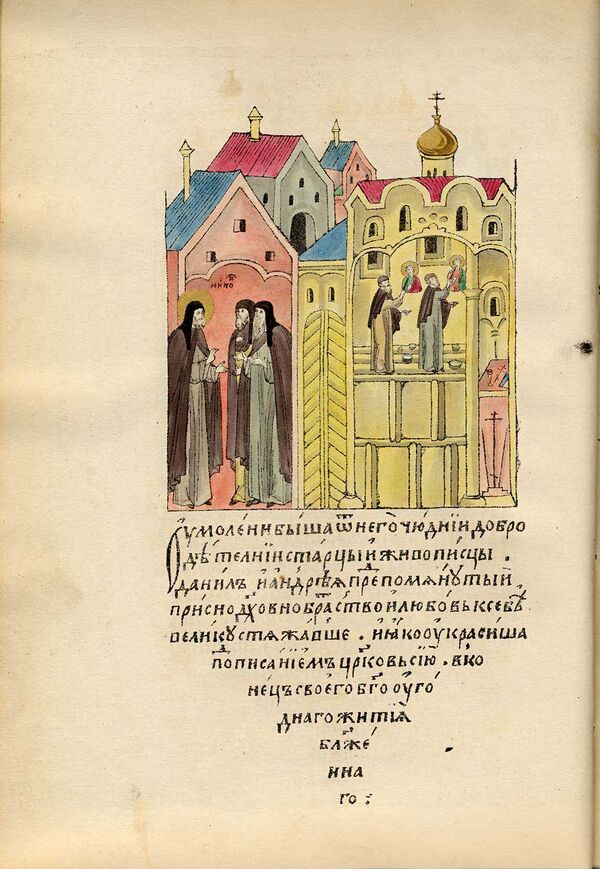 НИКО
Оумолени быша ѿ него чюднїи добро
дѣтелнїи старцы и живописцы.
данилъ и андрѣя препомянутый
присно дх҃овно братство и любовь к себѣ
велику стяжавше. и яко оукрасиша
пописанїемъ цр҃ковь сїю. в ко
нецъ своего бг҃ооуго
днаго житїя
блаже
нна
го: